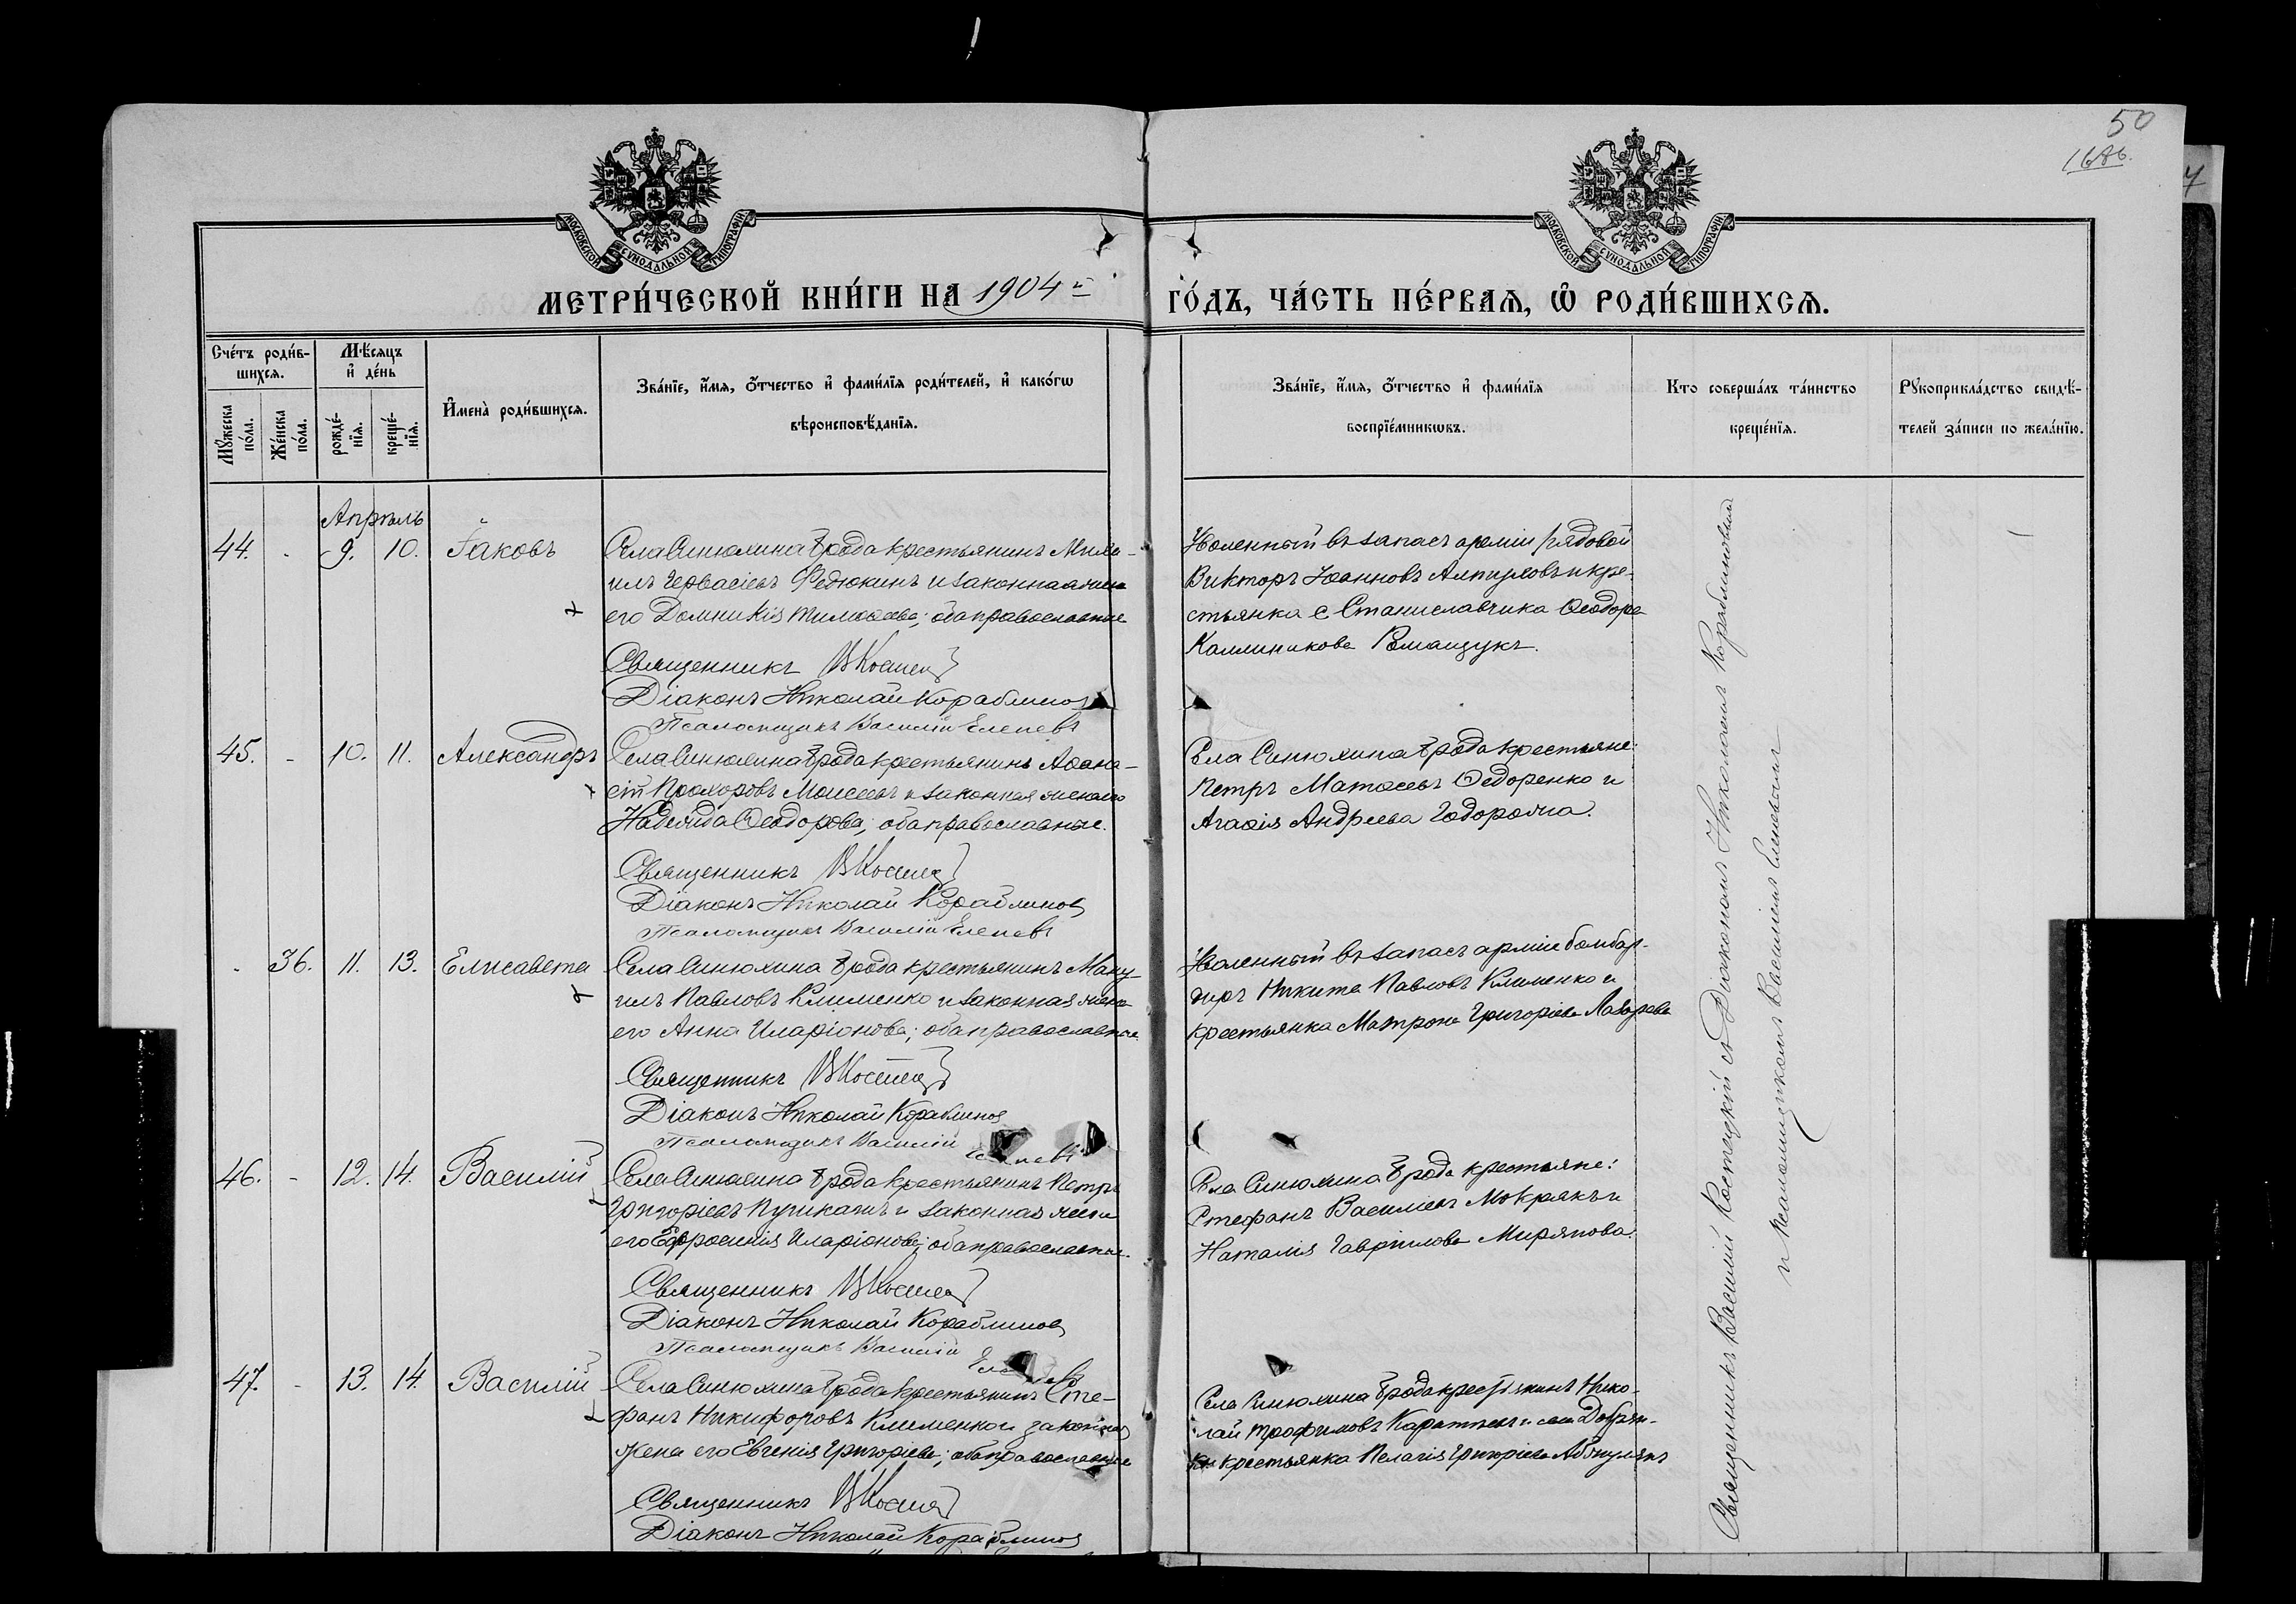 50
168б.
7
МОСКОВСКОЙ СѴНОДАЛЬНОЙ ТИПОГРАФІИ
МОСКОВСКОЙ СѴНОДАЛЬНОЙ ТИПОГРАФІИ
МЕТРИ́ЧЕСКОЙ КНИ́ГИ НА 1904й
ГО́ДЪ, ЧА́СТЬ ПЕ́РВАѦ, Ѡ РОДИ́ВШИХСѦ.
Сче́тъ роди́в-
шихсѧ.
Мꙋ́жеска по́ла.
Же́нска по́ла.
Мѣ́сѧцъ и҆ де́нь
рожде́-нїѧ.
креще́-нїѧ.
И҆мена̀ роди́вшихсѧ.
Зва́нїе, и҆́мѧ, ѻ҆́тчество и҆ фами́лїѧ роди́телей, и҆ како́гѡ
вѣроисповѣ́данїѧ.
Зва́нїе, и҆́мѧ, ѻ҆́тчество и҆ фами́лїѧ
воспрїе́мникѡвъ.
Кто̀ соверша́лъ та́инство
креще́нїѧ.
Рꙋкоприкла́дство свидѣ́-
телей за́писи по жела́нїю.
Апрѣль
44. - 9. 10. Іаковъ
Села Синюхина Брода крестьянинъ Миха-
илъ Гервасіевъ Федюкинъ и законная жена
его Домникія Тимоѳеева; оба православные
Священникъ В Костец
Діаконъ Николай Кораблинов
Псаломщикъ Василій Еленевъ
Уволенный въ запасъ арміи рядовой
Викторъ Іоанновъ и кре-
стьянка с Станиславчика Ѳеодора
Каллиникова Романщукъ.
45. - 10. 11. Александръ
Села Синюхина Брода крестьянинъ Аѳана-
сій Прохоровъ Моисеевъ и законная жена его
Надежда Ѳеодорова; оба православные.
Священникъ В Костец
Діаконъ Николай Кораблинов
Псаломщикъ Василій Еленевъ
Села Синюхина Брода крестьяне:
Петръ Матѳеевъ Ѳедоренко и
Агаѳія Андреева
- 36. 11. 13. Елисавета
Села Синюхина Брода крестьянинъ Ману-
илъ Павловъ Клименко и законная жена
его Анна Иларіонова; оба православные.
Священникъ В Костец
Діаконъ Николай Кораблинов
Псаломщикъ Василій Еленевъ
Уволенный въ запасъ арміи бомбар-
диръ Никита Павловъ Клименко и
крестьянка Матрона Григоріева Лазарева
46. - 12. 14. Василій
Села Синюхина Брода крестьянинъ Петръ
Григоріевъ и законная жена
его Ефросинія Иларіонова; оба православные.
Священникъ В Костец
Діаконъ Николай Кораблинов
Псаломщикъ Василій Еленевъ
Села Синюхина Брода крестьяне:
Стефанъ Василіевъ Мокрякъ и
Наталія Гавріилова Мирянова.
47. - 13. 14. Василій
Села Синюхина Брода крестьянинъ Сте-
фанъ Никифоровъ Клименко и законная
жена его Евгенія Григоріева; оба православные
Священникъ В Костец
Діаконъ Николай Кораблинов
Села Синюхина Брода крестьянинъ Нико-
лай Трофимовъ и села Добрян-
ки крестьянка Пелагія Григоріева
Священникъ Василій Костецкій съ Діакономъ Николаемъ Кораблиновымъ
и Псаломщикомъ Василіемъ Еленевымъ